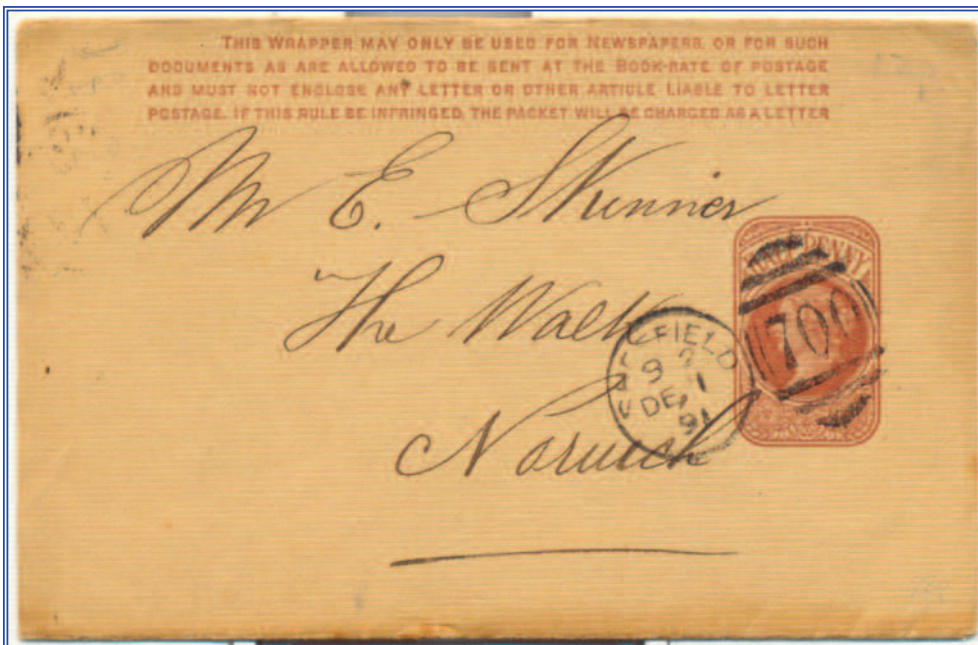 THIS WRAPPER MAY ONLY BE USED FOR NEWSPAPERS, OR FOR SUCH
DOCUMENTS AS ARE ALLOWED TO BE SENT AT THE BOOK-RATE OF POSTAGE
AND MUST NOT ENCLOSE ANY LETTER OR OTHER ARTICLE LIABLE TO LETTER
POSTAGE. IF THIS RULE BE INFRINGED, THE PACKET WILL BE CHARGED AS A LETTER
Mr E. Skinner
The Walk
Norwich
PENNY
700
FIELD
DE 1
91